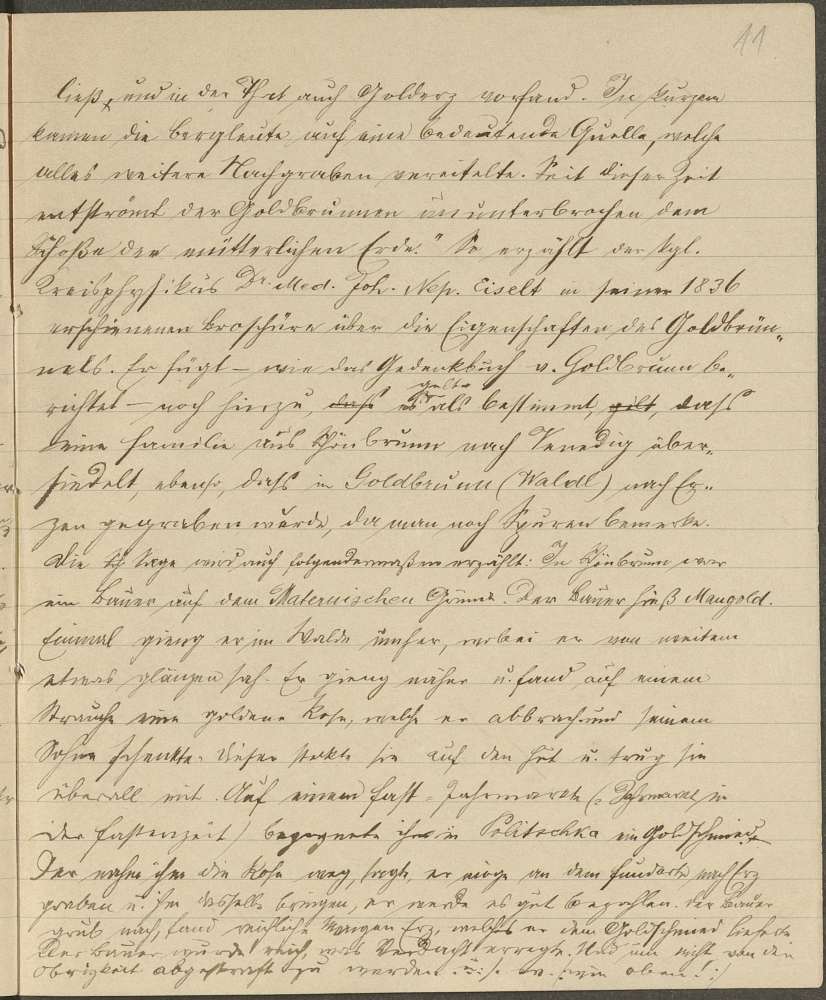 11
ließ, und in der That auch Golderz vorfand. In kurzem
kamen die Bergleute auf eine bedeutende Quelle, welche
alles weitere Nachgraben vereitelte. Seit dieser Zeit
entströmt der Goldbrunnen ununterbrochen dem
Schoße der mütterlichen Erde." So erzählt der kgl.
Kreisphysikus Dr. Med. Joh. Nep. Eiselt in seiner 1836
erschienenen Broschüre über die Eigenschaften des Goldbrün„
nels. Er fügt – wie das Gedenkbuch v. Goldbrunn be„
richtet – noch hinzu, dass es gelte als bestimmt, gilt, dass
eine Familie aus Schönbrunn nach Venedig über„
siedelt, ebenso, dass in Goldbrunn (Waldl) nach Er„
zen gegraben wurde, da man noch Spuren bemerke.
Die Sage wird auch folgendermaßen erzählt: In Schönbrunn war
ein Bauer auf dem Maternischen Grunde. Der Bauer hieß Mangold.
Einmal gieng er im Walde umher, wobei er von weitem
etwas glänzen sah. Er gieng näher u. fand auf einem
Strauche eine goldene Rose, welche er abbrach und seinem
Sohne schenkte. Dieser steckte sie auf den Hut u. trug sie
überall mit. Auf einem Fast-Jahrmarkte (= Jahrmarkt in
der Fastenzeit) begegnete ihm in Politschka ein Goldschmied.
Der nahm ihm die Rose weg, sagte, er möge an dem Fundorte nach Erz
graben u. ihm dasselbe bringen, er werde es gut bezahlen. Der Bauer
grub nach, fand reichliche Mengen Erz, welches er dem Goldschmied lieferte.
Der Bauer wurde reich, was Verdacht erregte. Und um nicht von der
Obrigkeit abgestraft zu werden wie oben!